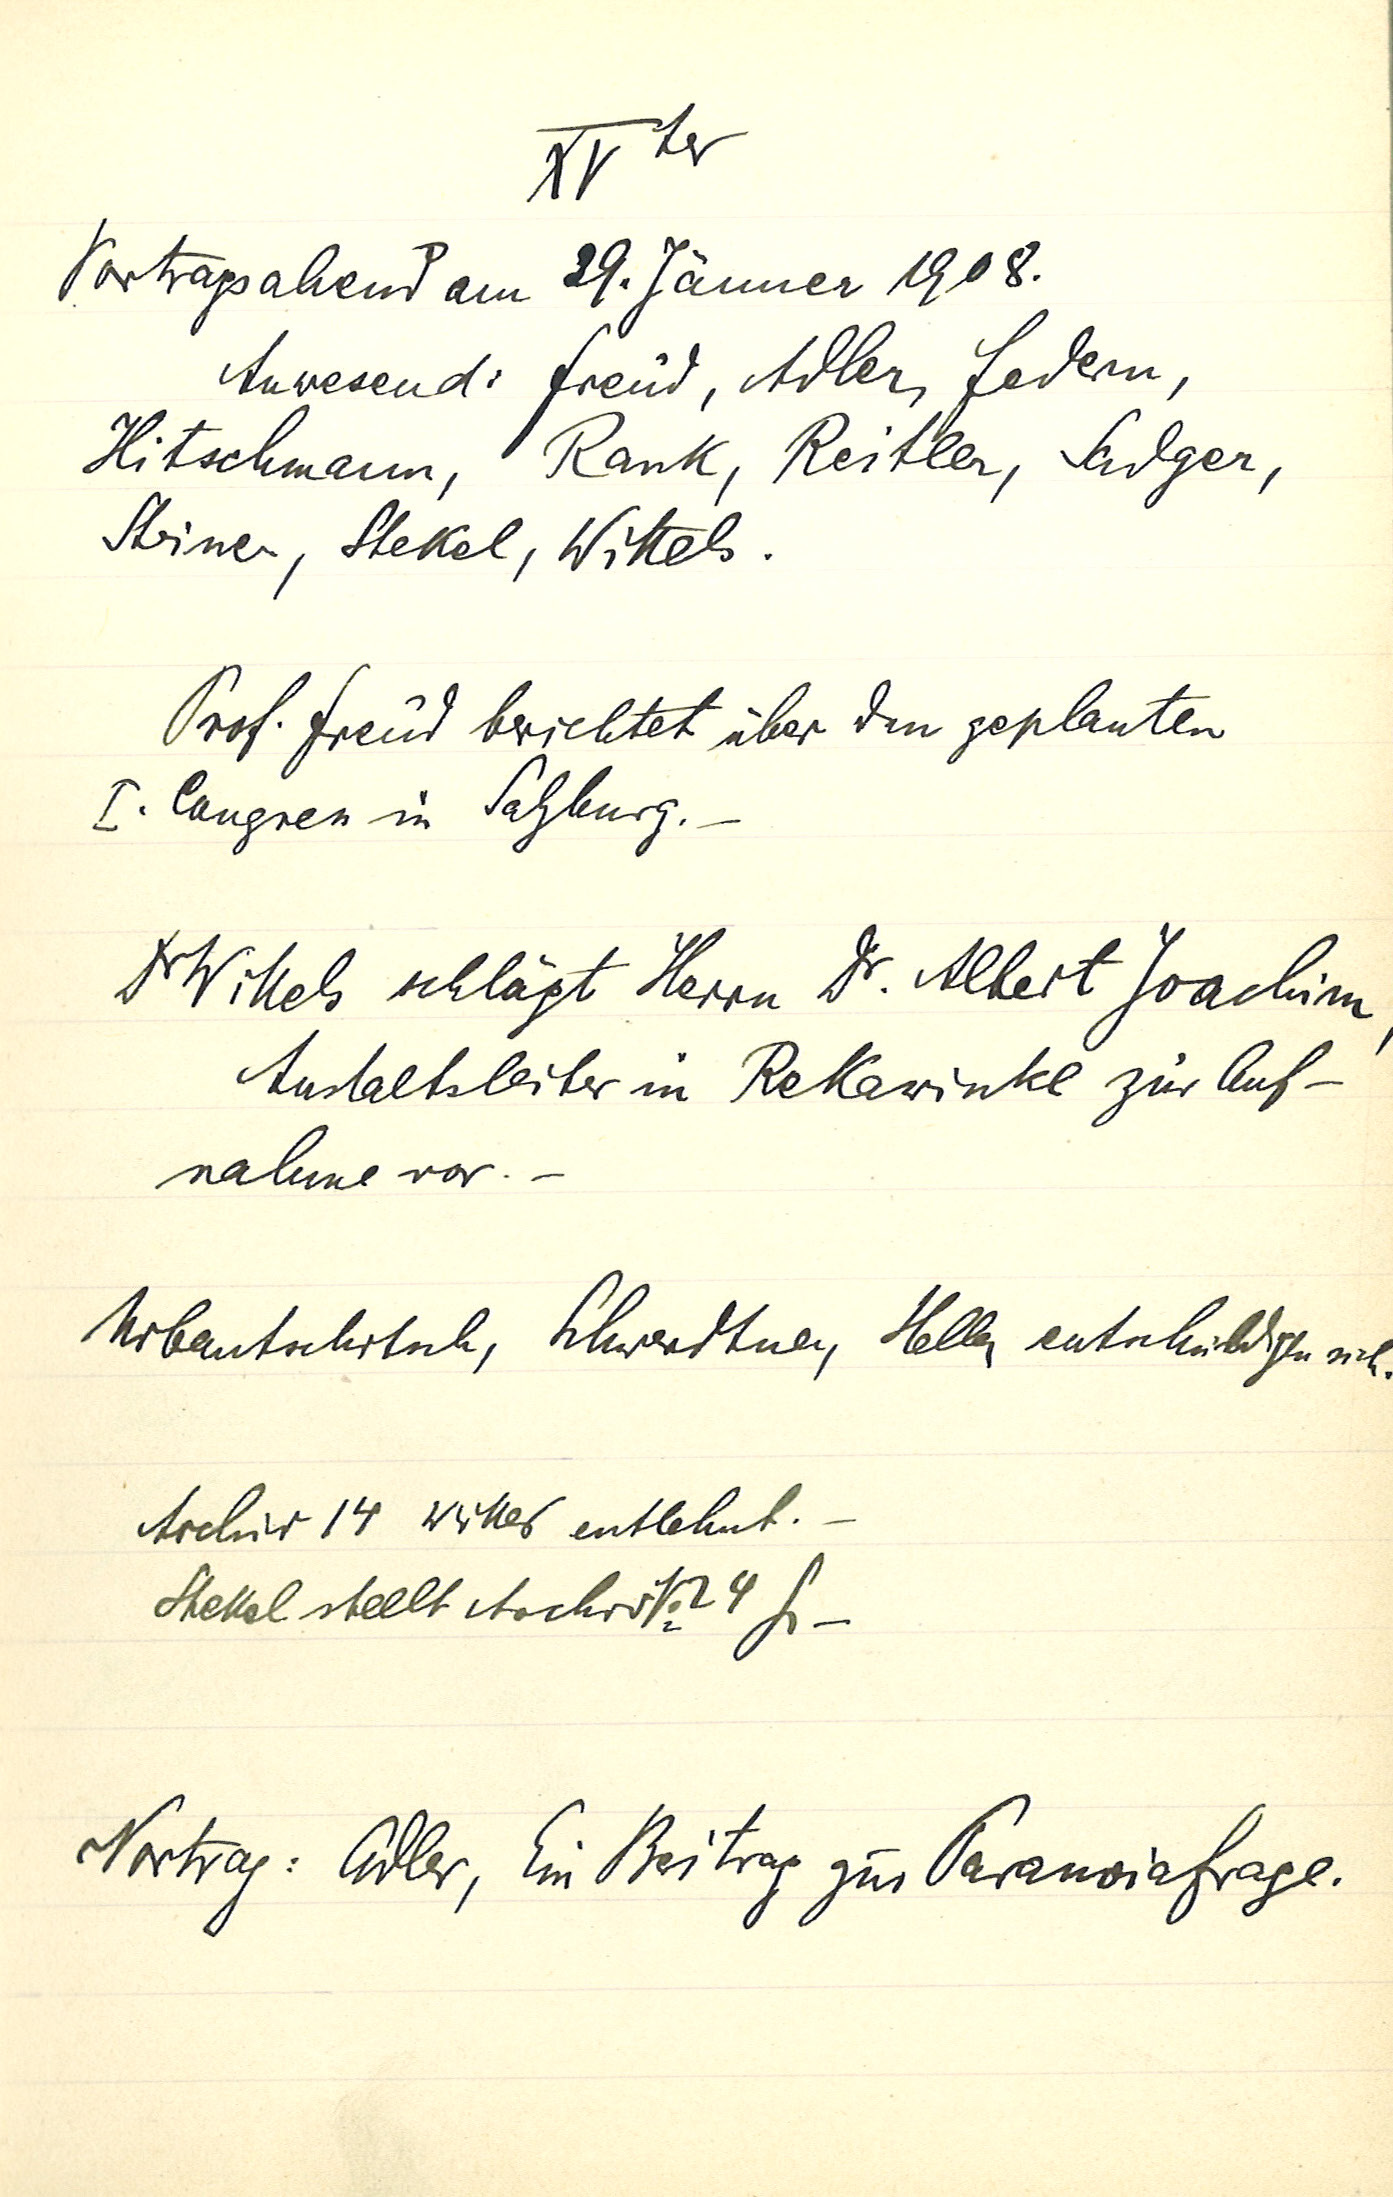 XV ter
Vortragsabend am 29. Jänner 1908.
Anwesend: Freud, Adler, Federn,
Hitschmann, Rank, Reitler, Sadger,
Steiner, Stekel, Wittels.
Prof. Freud berichtet über den geplanten
I. Congress in Salzburg. –
Dr Wittels schlägt Herrn Dr. Albert Joachim,
Anstaltsleiter in Rekawinkl zur Auf-
nahme vor. –
Urbantschitsch, Schwerdtner, Heller entschuldigen sich.
Archiv 14 Wittels entlehnt. –
Stekel stellt Archiv No 24
Vortrag: Adler, Ein Beitrag zur Paranoiafrage.